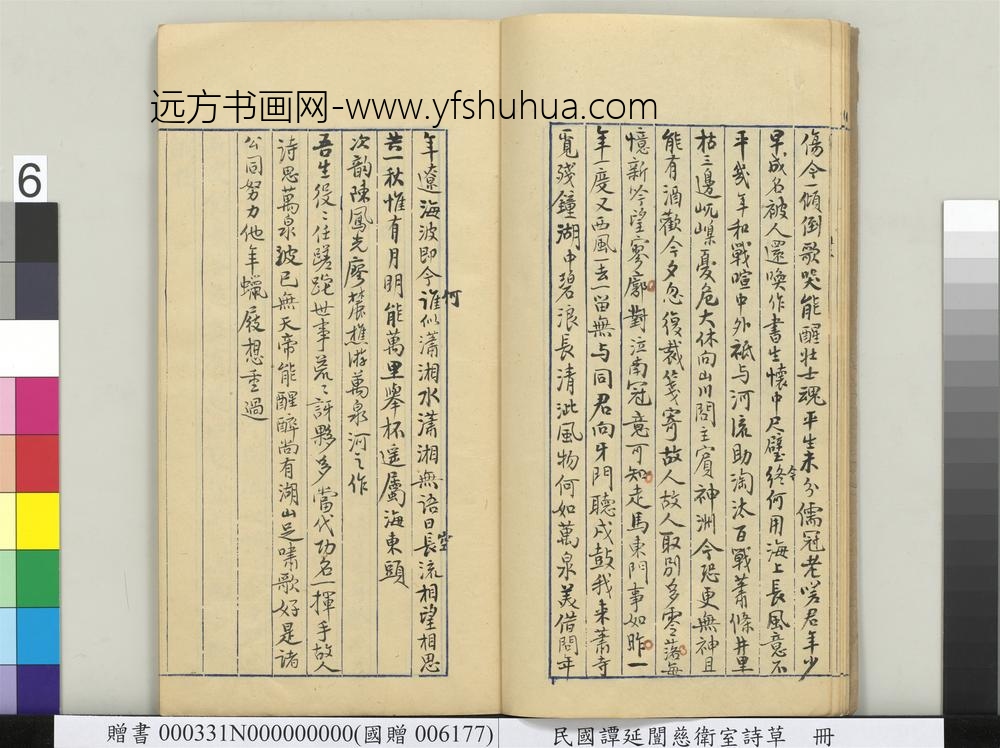 远方书画网-www.yfshuhua.com
傷今一傾倒歌哭能醒壯士魂平生未分儒冠老嗟君年少
早成名被人還喚作書生懷中尺璧終何用海上長風意不
令
平幾年和戰喧中外祗与河流助淘汰百戰蕭條井里
枯三邊屼嵲憂危大休向山川問主賓神洲今恐更無神且
能有酒歡今夕忽復裁箋寄故人故人取別多零落每
憶新吟望寥廓對泣南冠意可知走馬東門事如昨一
年一度又西風一去一留無与同君向牙門聽戍鼓我来蕭寺
覓殘鐘湖中碧浪長清泚風物何如萬泉美借問年
年遼海波即今誰似瀟湘水瀟湘無語日長流相望相思
何
空
苦一秋惟有月明能萬里舉杯遥屬海東頭
次韵陳鳳光廖麓樵游萬泉河之作
吾生役〻任蹉跎世事荒〻訝夥多當代功名一揮手故人
詩思萬泉波已無天帝能醒醉尚有湖山足嘯歌好是諸
公同努力他年蠟屐想重過
6
贈書 000331N000000000(國贈 006177)
民國譚延闓慈衛室詩草 冊